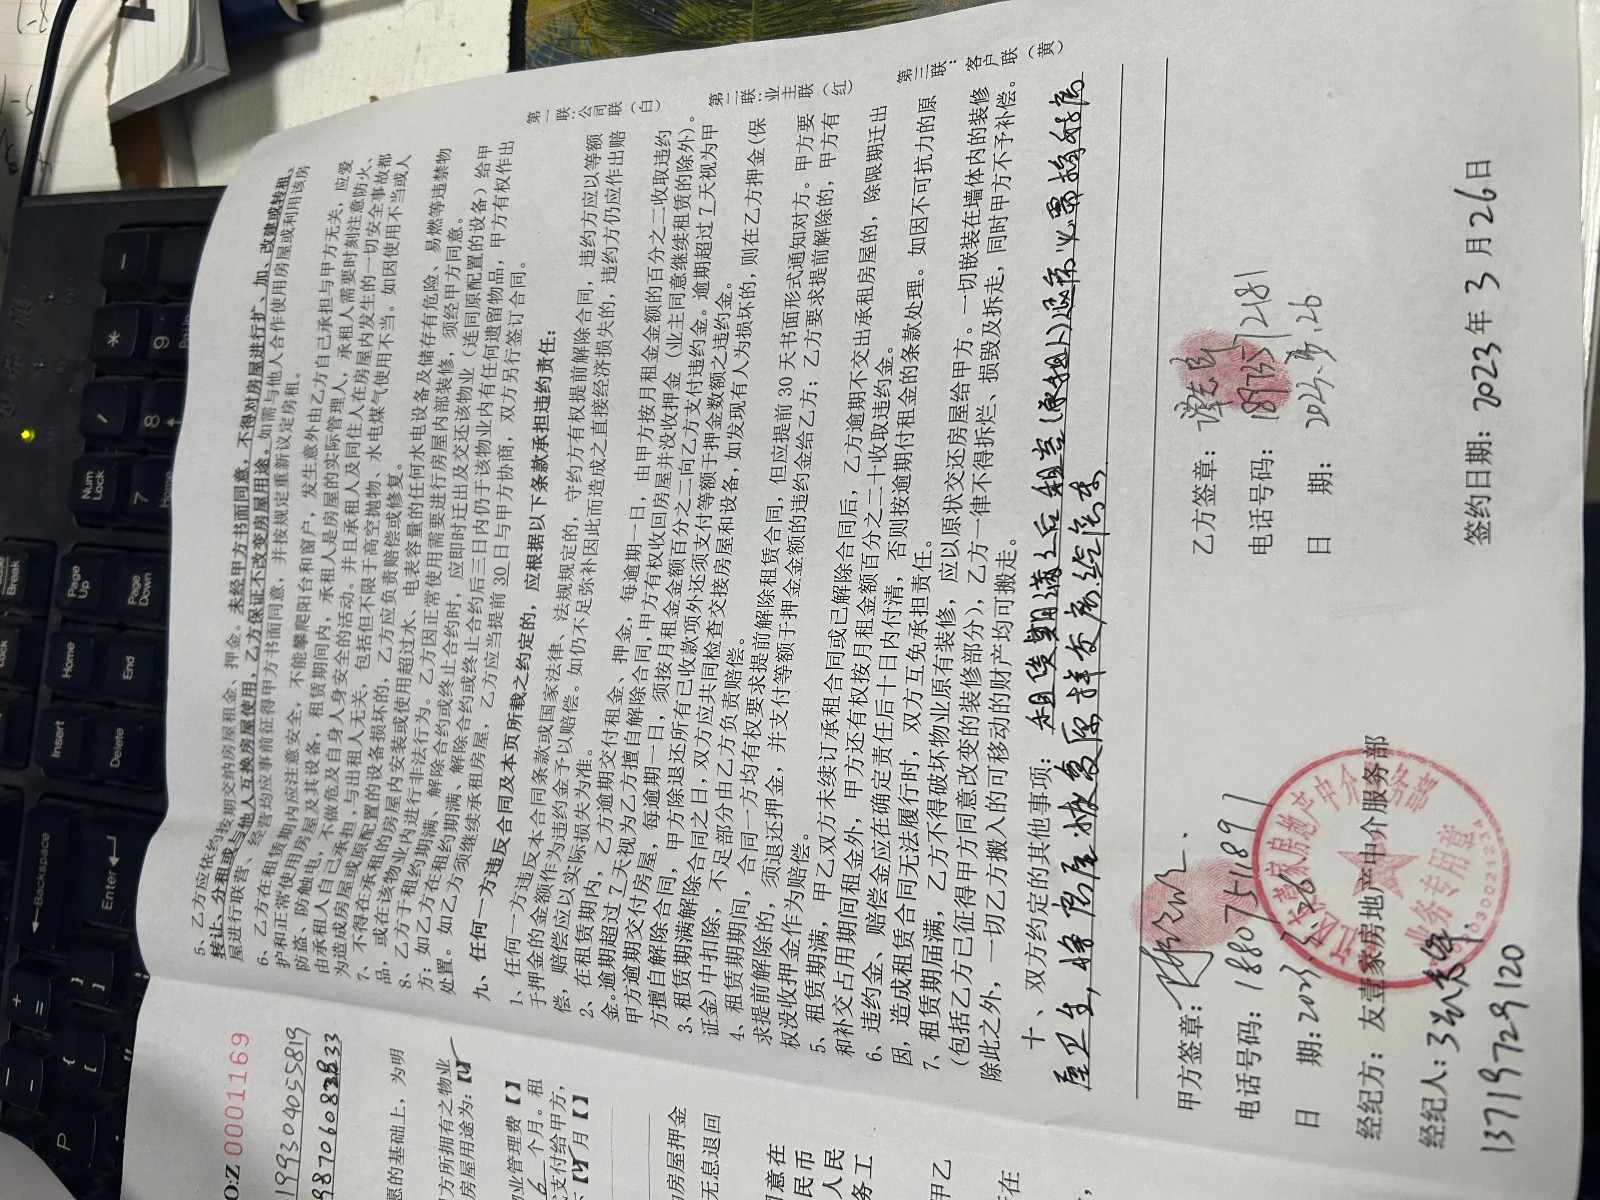 5、乙方应依约按期交纳房屋租金、押金。未经甲方书面同意，不得对房屋进行扩、加、改建或转租、
转让、分租或与他人互换房屋使用，乙方保证不改变房屋用途。如需与他人合作使用房屋或利用该房
屋进行联营、经营均应事前征得甲方书面同意，并按规定重新议定房租。
6、乙方在租赁期内应注意安全，不能攀爬阳台和窗户，发生意外由乙方自己承担与甲方无关，应爱
护和正常使用房屋及其设备，租赁期间内，承租人是房屋的实际管理人，承租人需要时刻注意防火、
防盗、防触电、不做危及自身人身安全的活动。并且承租人及同住人在房屋内发生的一切安全事故都
由承租人自己承担，与出租人无关，包括但不限于高空抛物、水电煤气使用不当。如因使用不当或人
为造成房屋或原配置的设备损坏的，乙方应负责赔偿或修复。
7、不得在承租的房屋内安装或使用超过水、电表容量的任何水电设备及储存有危险、易燃等违禁物
品，或在该物业内进行非法行为。乙方因正常使用需要进行房屋内部装修，须经甲方同意。
8、乙方于租约期满、解除合约或终止合约时，应即时迁出及交还该物业（连同原配置的设备）给甲
方；如乙方在租约期满、解除合约或终止合约后三日内仍于该物业内有任何遗留物品，甲方有权作出
处置。如乙方须继续承租房屋，乙方应当提前 30 日与甲方协商，双方另行签订合同。
九、任何一方违反合同及本页所载之约定的，应根据以下条款承担违约责任：
1、任何一方违反本合同条款或国家法律、法规规定的，守约方有权提前解除合同，违约方应以等额
于押金的金额作为违约金予以赔偿。如仍不足弥补因此而造成之直接经济损失的，违约方仍应作出赔
偿，赔偿应以实际损失为准。
2、在租赁期内，乙方逾期交付租金、押金，每逾期一日，由甲方按月租金金额的百分之二收取违约
金。逾期超过 7 天视为乙方擅自解除合同，甲方有权收回房屋并没收押金（业主同意继续租赁的除外）。
甲方逾期交付房屋，每逾期一日，须按月租金金额百分之二向乙方支付违约金。逾期超过 7 天视为甲
方擅自解除合同，甲方除退还所有已收款项外还须支付等额于押金数额之违约金。
3、租赁期满解除合同之日，双方应共同检查交接房屋和设备，如发现有人为损坏的，则在乙方押金（保
证金）中扣除，不足部分由乙方负责赔偿。
4、租赁期间，合同一方均有权要求提前解除租赁合同，但应提前 30 天书面形式通知对方。甲方要
求提前解除的，须退还押金，并支付等额于押金金额的违约金给乙方；乙方要求提前解除的，甲方有
权没收押金作为赔偿。
5、租赁期满，甲乙双方未续订承租合同或已解除合同后，乙方逾期不交出承租房屋的，除限期迁出
和补交占用期间租金外，甲方还有权按月租金额百分之二十收取违约金。
6、违约金、赔偿金应在确定责任后十日内付清，否则按逾期付租金的条款处理。如因不可抗力的原
因，造成租赁合同无法履行时，双方互免承担责任。
7、租赁期届满，乙方不得破坏物业原有装修，应以原状交还房屋给甲方。一切嵌装在墙体内的装修
（包括乙方已征得甲方同意改变的装修部分），乙方一律不得拆烂、损毁及拆走，同时甲方不予补偿。
除此之外，一切乙方搬入的可移动的财产均可搬走。
十、双方约定的其他事项：租赁期满之后租客（承租人）退房必需搞好房
屋卫生，将房屋恢复原样交房给房东
甲方签章：
电话号码：18807551891
日 期：
经纪方：友壹家房地产中介服务部
经纪人：
13719729120
乙方签章：
电话号码：
日 期：
签约日期：2023 年 3 月 26 日
第一联：公司联（白）
第二联：业主联（红）
第三联：客户联（黄）
房地产中介服务部
业务专用章
O:Z 0001169
愿的基础上，为明
方所拥有之物业
房屋用途为：【
业管理费【】
6 个月。租
支付给甲方，
月【】
房屋押金
无息退回
同意在
民币
人民
务工
甲乙
Backspace
Enter
Insert
Delete
Home
End
Page Up
Page Down
Num Lock
7
Home
8
9
Break
P